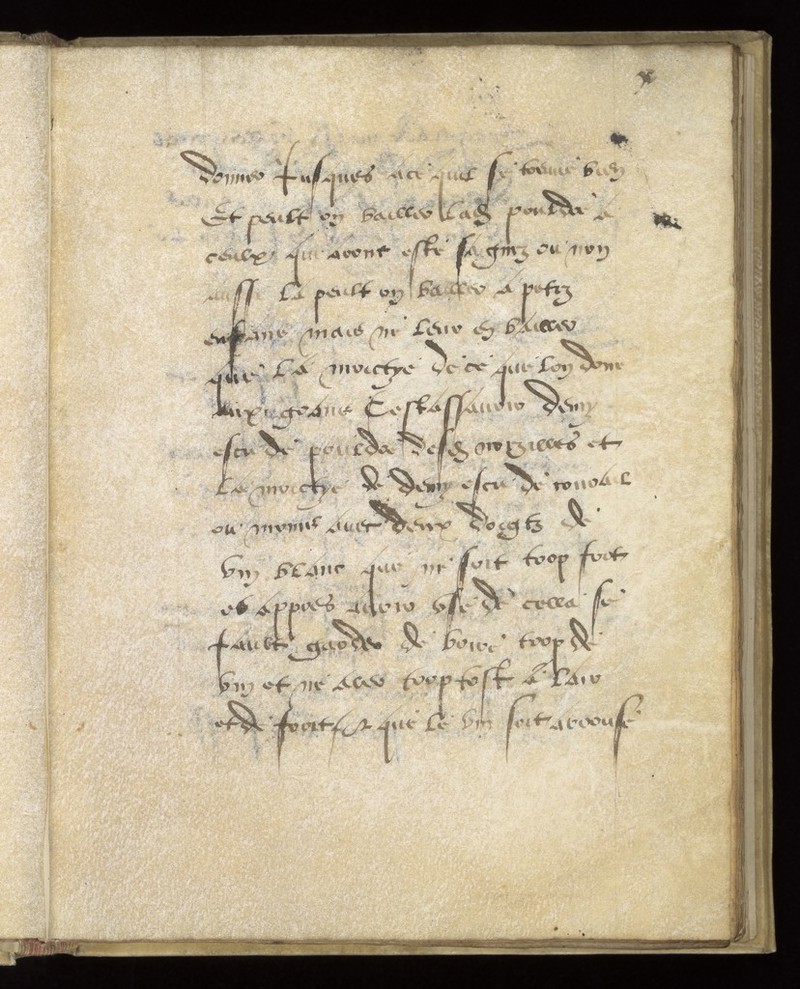 donner Jusques ace quil se treuve bien
Et peult on bailler lad pouldre a
ceulx que aront esté sagnez ou non
aussi la peult on bailler a petiz
enfans mais ne leur en bailler
que la moictye de ce que lon done
aux grans Cestassavoir demy
escu de pouldre desd
la moictye de demy escu de
ou moins avec deux doegtz de
vin blanc que ne soit trop fort
et appres avoir usé de cella se
fault garder de boire trop de
vin et ne aller trop tost a lair
et de que le vin soit arrousé